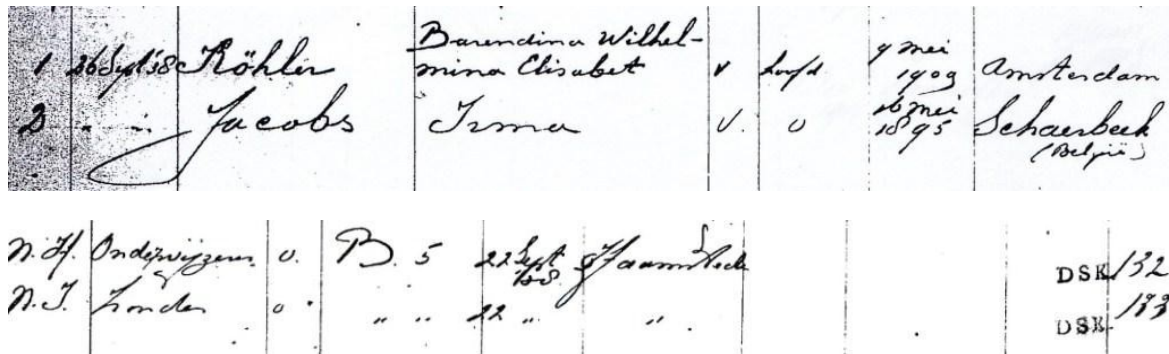 1 26 Sept '38 Köhler Barendina Wilhel-
mina Elisabet v hoofd 9 mei
1909 Amsterdam
2 " " Jacobs Irma v. o 16 mei
1895 Schaerbeek
(België)
N.H. Onderwijzeres o. B. 5 22 Sept
'38 Haamstede DSK 132
N.I. Zonder o " " 22 " " DSK 133